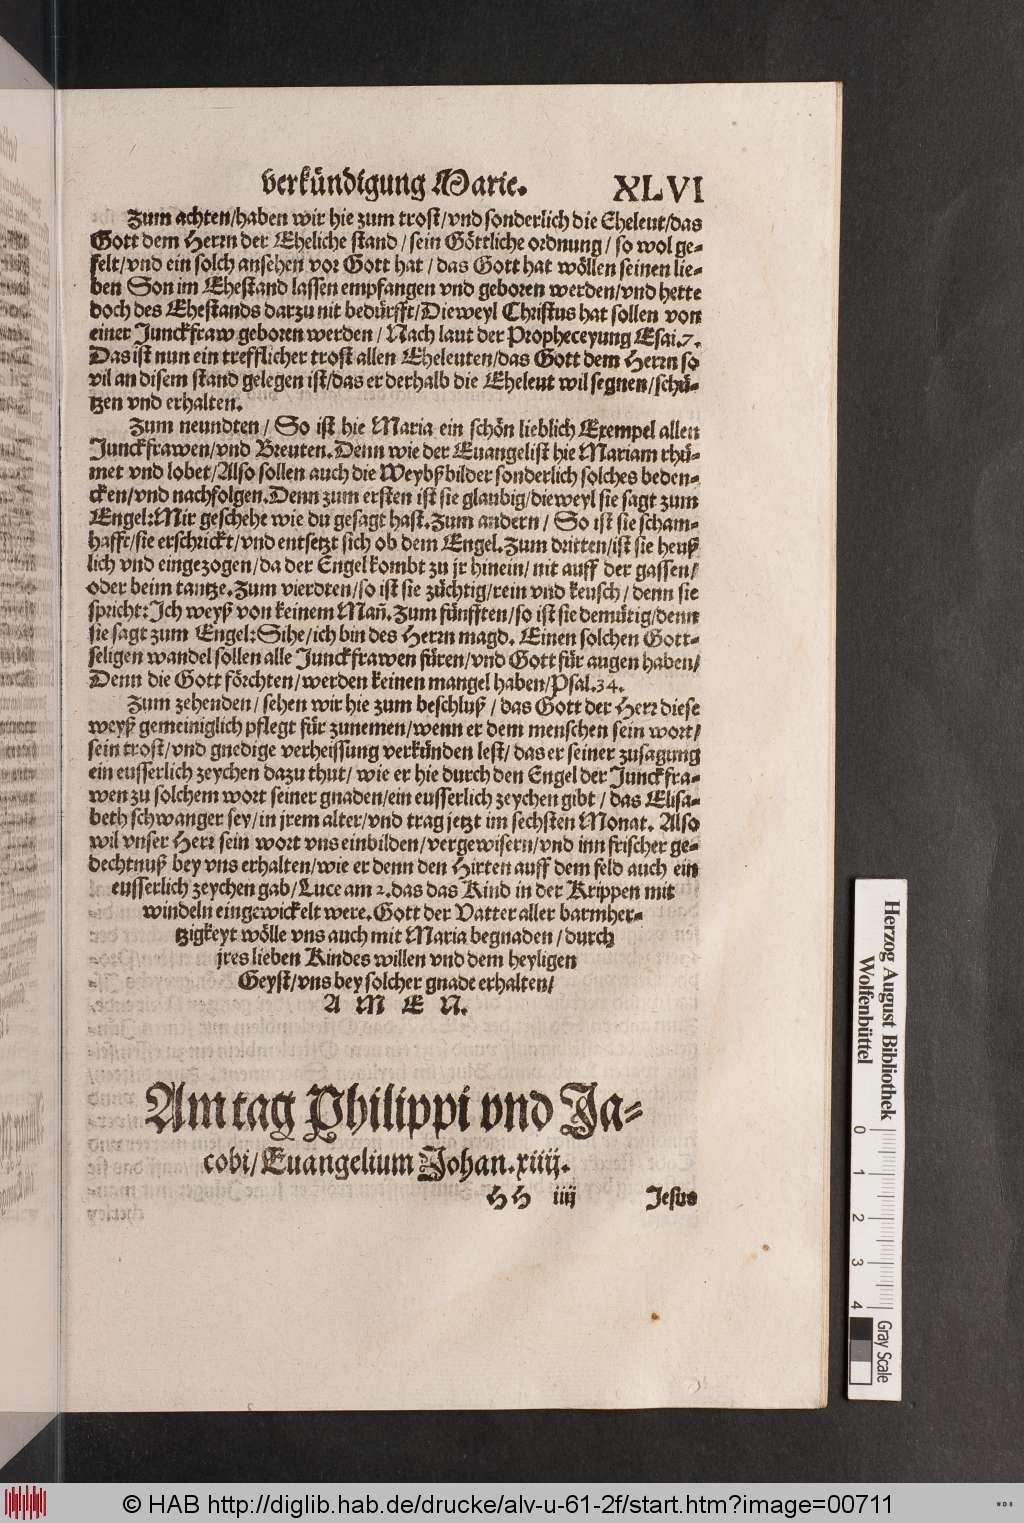 verkündigung Marie. XLVI
Zum achten/haben wir hie zum trost/vnd sonderlich die Eheleut/das
Gott dem Herrn der Eheliche stand/sein Göttliche ordnung/so wol ge-
felt/vnd ein solch ansehen vor Gott hat/das Gott hat wöllen seinen lie-
ben Son im Ehestand lassen empfangen vnd geboren werden/vnd hette
doch des Ehestands darzu nit bedürfft/Dieweyl Christus hat sollen von
einer Junckfraw geboren werden/Nach laut der Propheceyung Esai.7.
Das ist nun ein trefflicher trost allen Eheleuten/das Gott dem Herrn so
vil an disem stand gelegen ist/das er derhalb die Eheleut wil segnen/schü-
tzen vnd erhalten.
Zum neundten/So ist hie Maria ein schön lieblich Exempel allen
Junckfrawen/vnd Breuten.Denn wie der Euangelist hie Mariam rhü-
met vnd lobet/Also sollen auch die Weybßbilder sonderlich solches beden-
cken/vnd nachfolgen.Denn zum ersten ist sie glaubig/dieweyl sie sagt zum
Engel:Mir geschehe wie du gesagt hast.Zum andern/So ist sie scham-
hafft/sie erschrickt/vnd entsetzt sich ob dem Engel.Zum dritten/ist sie heuß
lich vnd eingezogen/da der Engel kombt zu jr hinein/nit auff der gassen/
oder beim tantze.Zum vierdten/so ist sie züchtig/rein vnd keusch/denn sie
spricht:Ich weyß von keinem Mañ.Zum fünfften/so ist sie demütig/denn
sie sagt zum Engel:Sihe/ich bin des Herrn magd. Einen solchen Gott-
seligen wandel sollen alle Junckfrawen füren/vnd Gott für augen haben/
Denn die Gott förchten/werden keinen mangel haben/Psal.34.
Zum zehenden/sehen wir hie zum beschluß/das Gott der Herr diese
weyß gemeiniglich pflegt für zunemen/wenn er dem menschen sein wort/
sein trost/vnd gnedige verheissung verkünden lest/das er seiner zusagung
ein eusserlich zeychen dazu thut/wie er hie durch den Engel der Junckfra-
wen zu solchem wort seiner gnaden/ein eusserlich zeychen gibt/das Elisa-
beth schwanger sey/in jrem alter/vnd trag jetzt im sechsten Monat. Also
wil vnser Herr sein wort vns einbilden/vergewisern/vnd inn frischer ge-
dechtnuß bey vns erhalten/wie er denn den Hirten auff dem feld auch ein
eusserlich zeychen gab/Luce am 2.das das Kind in der Krippen mit
windeln eingewickelt were.Gott der Vatter aller barmher-
tzigkeyt wölle vns auch mit Maria begnaden/durch
jres lieben Kindes willen vnd dem heyligen
Geyst/vns bey solcher gnade erhalten/
A M E N.
Am tag Philippi vnd Ja-
cobi/Euangelium Johan.xiiij.
HH iiij Jesus
Herzog August Bibliothek
Wolfenbüttel
0 1 2 3 4
Gray Scale
© HAB http://diglib.hab.de/drucke/alv-u-61-2f/start.htm?image=00711